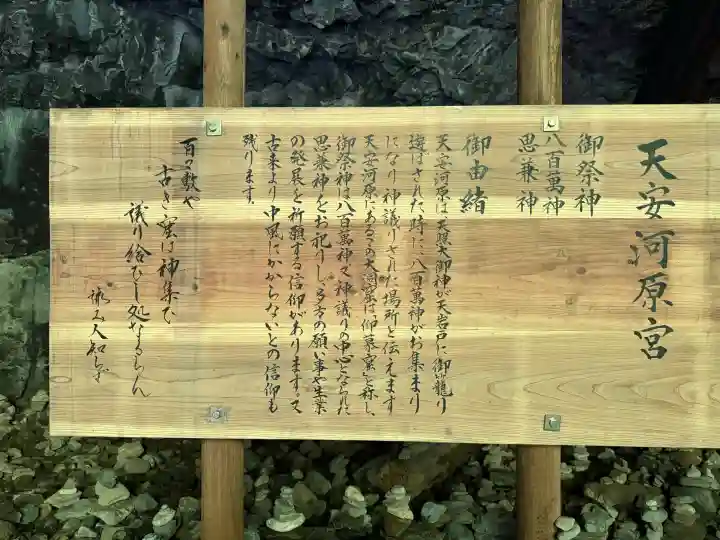 天安河原宮
御祭神
八百萬神
思兼神
御由緒
天安河原は天照大御神が天岩戸に御籠り
遊ばされた時に、八百萬神がお集まり
になり神議りされた場所と伝えます
天安河原にあるこの大洞窟は仰慕窟と称し、
御祭神は八百萬神又神議りの中心となられた
思兼神をお祀りし、多方の願い事や生業
の発展を祈願する信仰があります。又
古来より中風にかからないとの信仰も
残ります。
百々敷や
古き窟は神集で
議り給ひし処なるらん